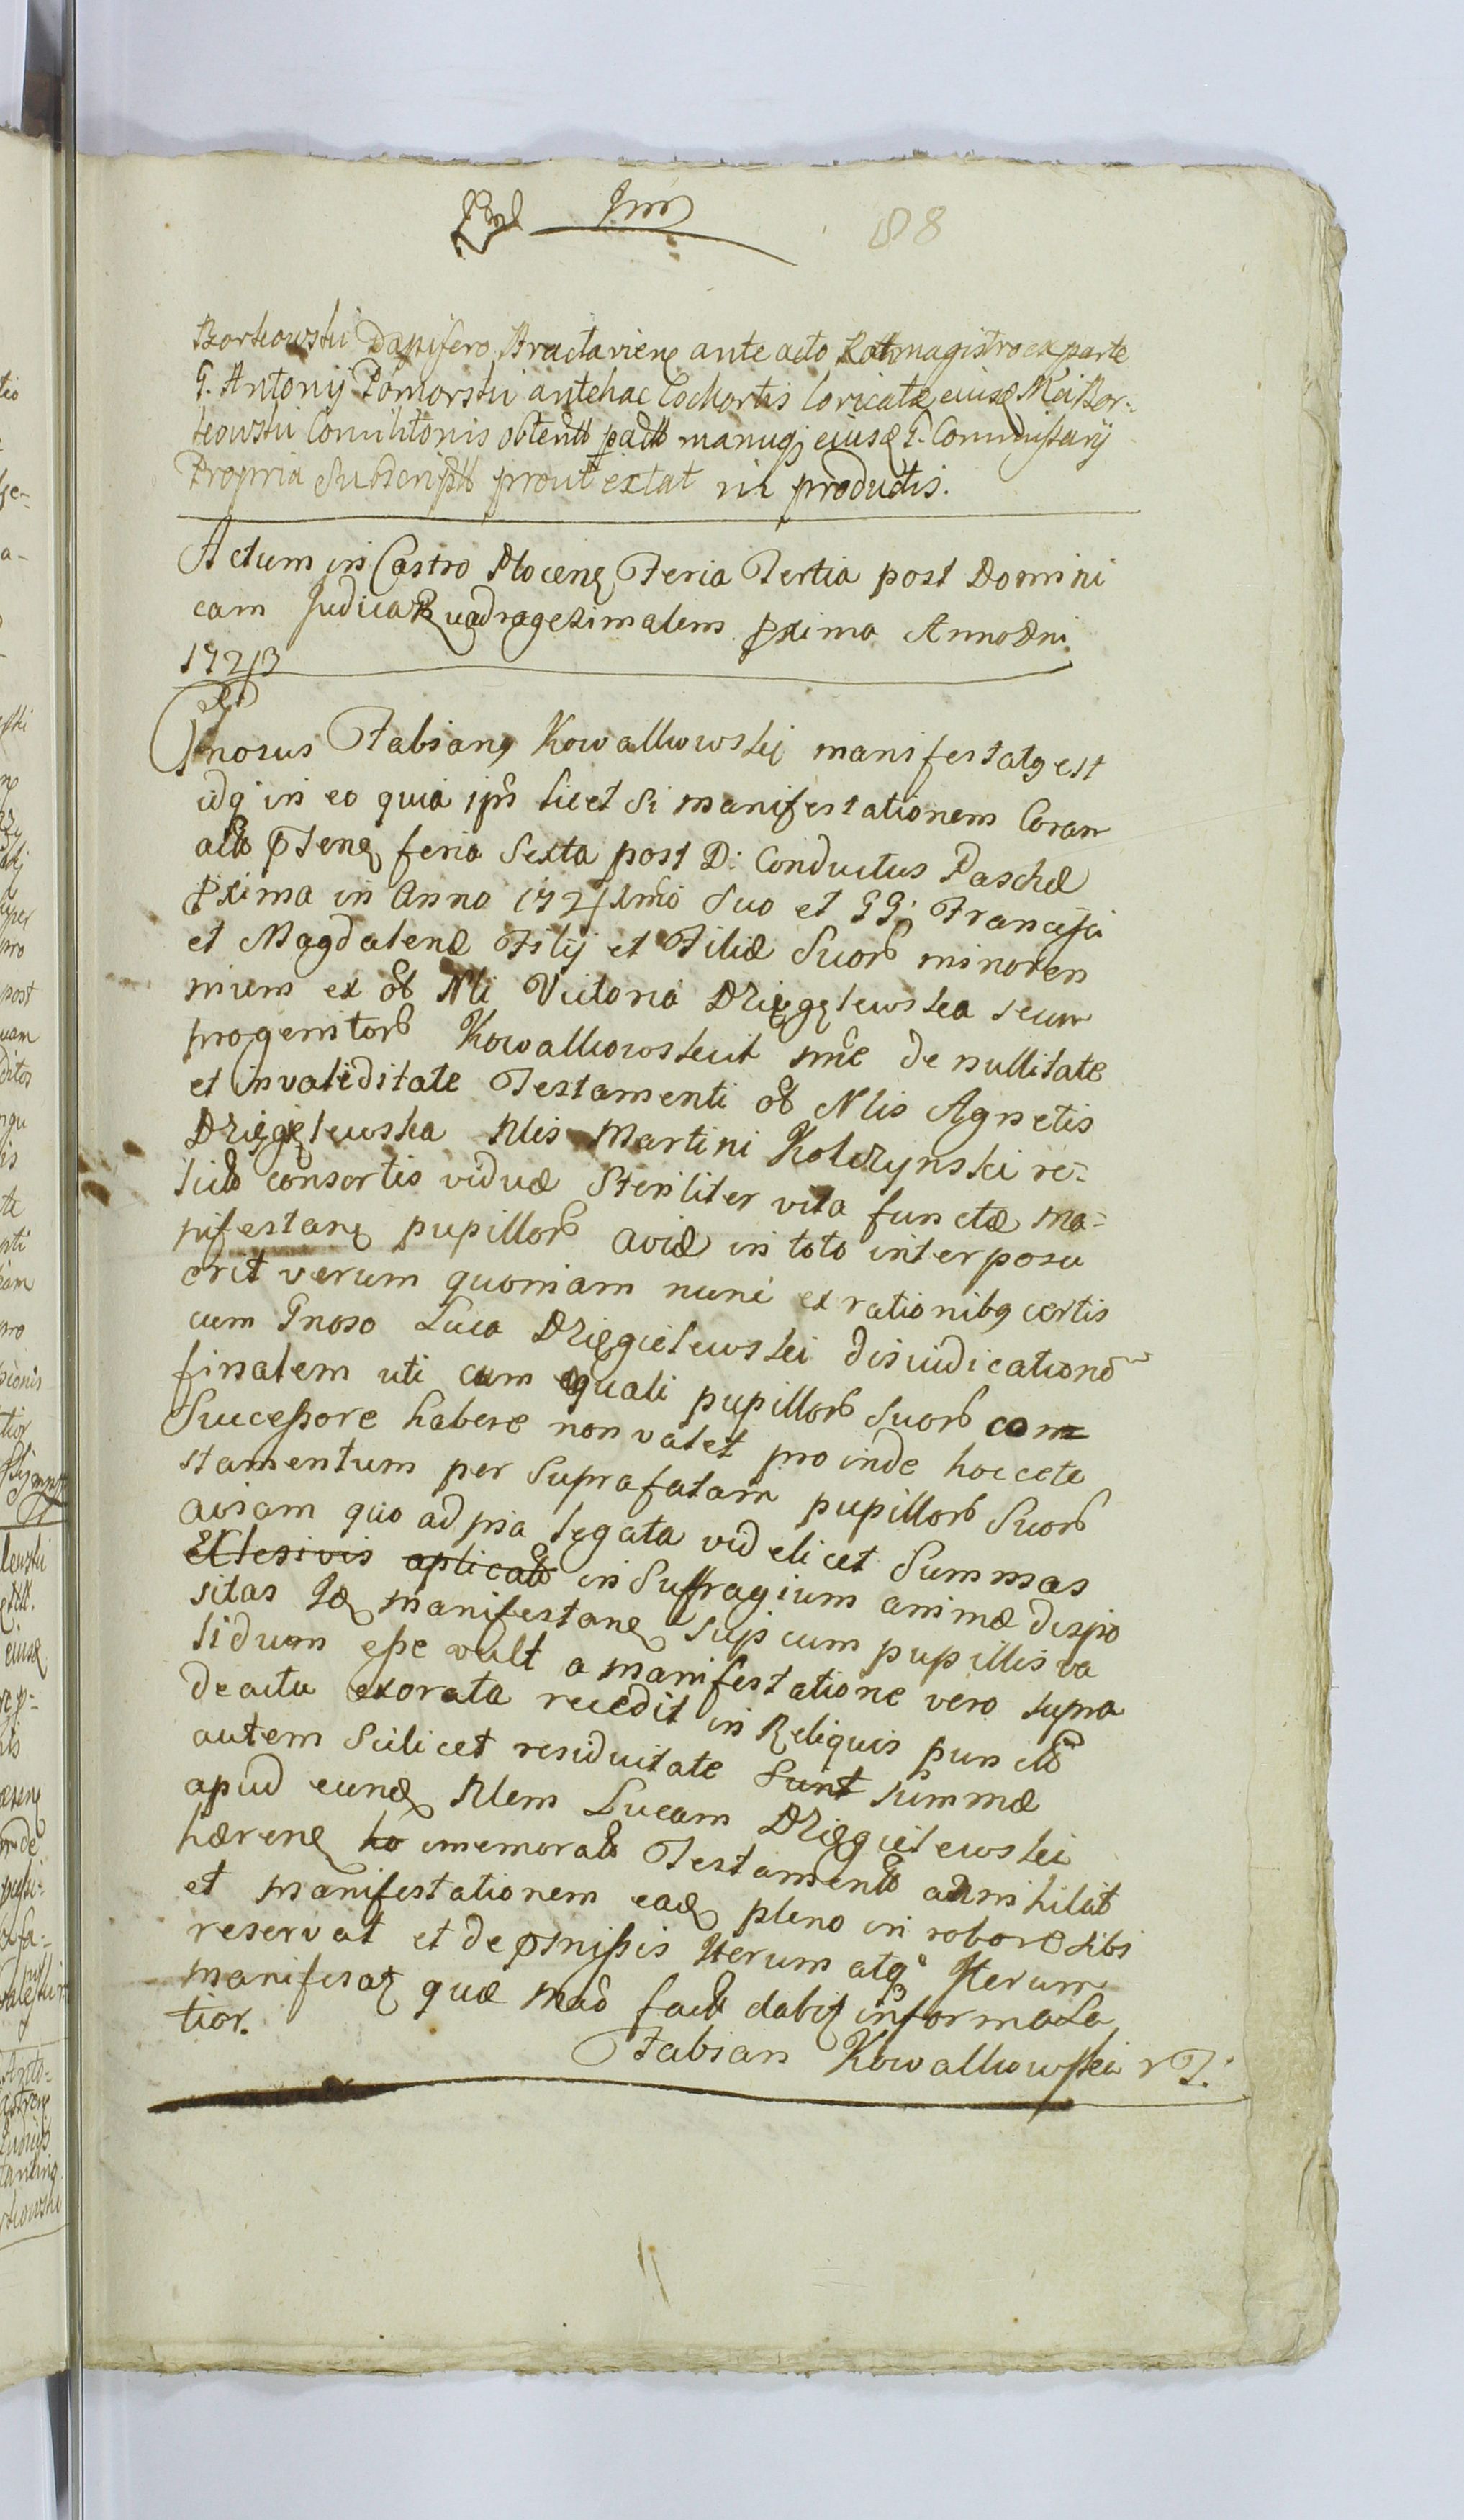 88
Borkowski Dapifero Bractavieñ ante acto Rothmagistro ex parte
G. Antonij Pomorski antehac Cochortis loricatæ eiusd Mci Bor-
kowski Comilitonis obtent manuq eiusd G. Commissarij
Propria Subscript prout extat in productis.
Actum in Castro Ploceñ Feria Tertia post Domini
cam Judica Quadragesimalem pxima Anno Dni
1723
Gnosus Fabianq Kowalkowski manifestatq est
idq in eo quia ips licet Si manifestationem Coram
act pteñ feria Sexta post D: Conductus Paschæ
pxima in Anno 1721 Suo et GG. Francisci
et Magdalenæ Filij et Filiæ Suor minoren
nium ex ol Nli Victoria Dzięgęlewska secum
progenitor Kowalkowskich de nullitate
et invaliditate Testamenti ol Nlis Agnetis
Dzięgęlewska Nlis Martini Kolczynski re-
lict consortis viduæ Steriliter vita functæ ma-
nifestanñ pupillor aviæ in toto interposu
erit verum quoniam nunc ex rationibq certis
cum Gnoso Luca Dzięgielewski disiudicationē
finalem uti cum equali pupillor Suor com
Successore habere non valet pro inde hocce te
stamentum per Suprafatam pupillor Suor
aviam quo ad pia legata videlicet Summas
aplicat in Suffragium animæ dispo
sitas Id manifestañ cum pupillis va
lidum esse vult a manifestatione vero supra
de actu exorata recedit in Reliquis punct
autem Scilicet residuitate Sunt summæ
apud eund Nlem Lucam Dzięgielewski
hæreñ imemorat Testament adnihilat
et manifestationem eand pleno in robore sibi
reservat et de pmissis Iterum atq Iterum
manifestar quæ mao fact dabit informatio
tior.
Fabian Kowalkowski